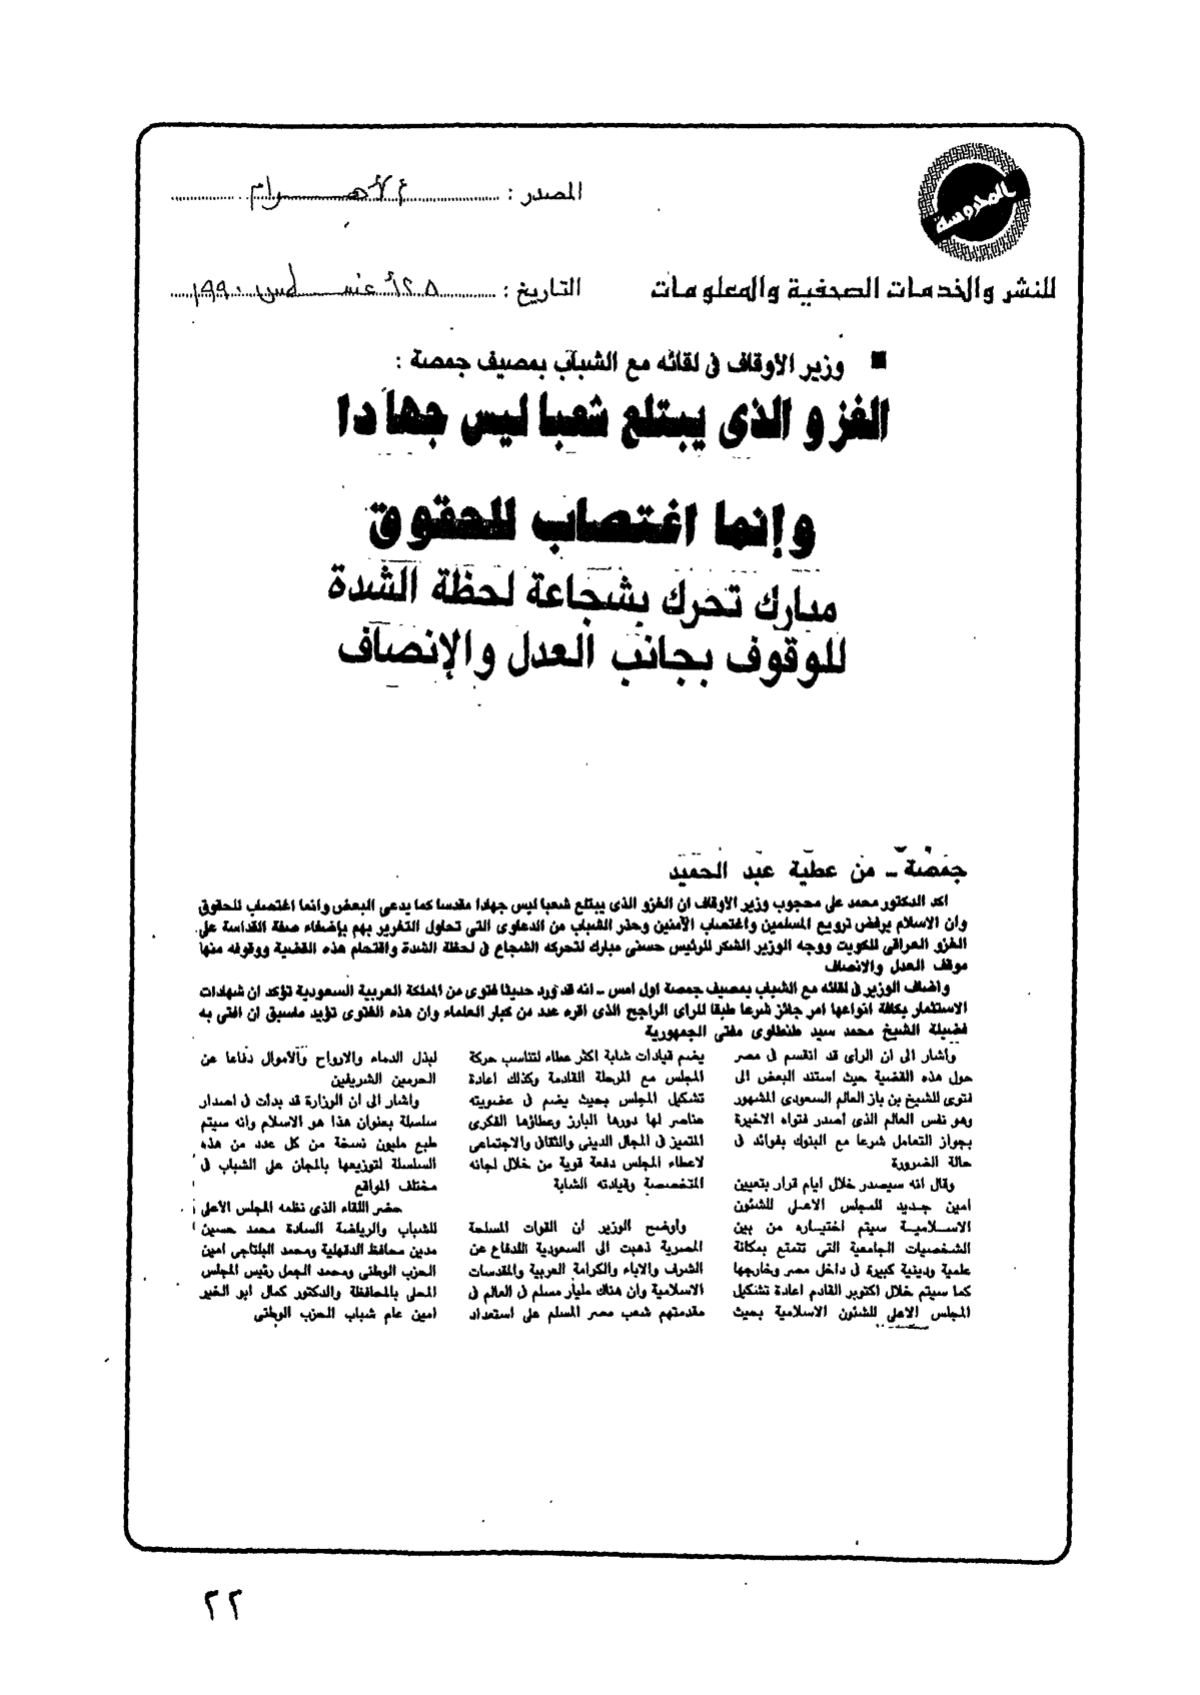 المحروسة
المصدر : الأهرام
للنشر والخدمات الصحفية والمعلومات
التاريخ : ٢٥ أغسطس ١٩٩٠
■ وزير الأوقاف فى لقائه مع الشباب بمصيف جمصة :
الغزو الذى يبتلع شعبا ليس جهادا
وإنما اغتصاب للحقوق
مبارك تحرك بشجاعة لحظة الشدة
للوقوف بجانب العدل والإنصاف
جمصة ـ من عطية عبد الحميد
اكد الدكتور محمد على محجوب وزير الاوقاف ان الغزو الذى يبتلع شعبا ليس جهادا مقدسا كما يدعى البعض وانما اغتصاب للحقوق
وان الاسلام يرفض ترويع المسلمين واغتصاب الآمنين وحذر الشباب من الدعاوى التى تحاول التغرير بهم بإضفاء صفة القداسة على
الغزو العراقى للكويت ووجه الوزير الشكر للرئيس حسنى مبارك لتحركه الشجاع فى لحظة الشدة واقتحام هذه القضية ووقوفه منها
موقف العدل والانصاف
واضاف الوزير فى لقائه مع الشباب بمصيف جمصة اول امس ـ انه قد ورد حديثا فتوى من المملكة العربية السعودية تؤكد ان شهادات
الاستثمار بكافة انواعها امر جائز شرعا طبقا للراى الراجح الذى اقره عدد من كبار العلماء وان هذه الفتوى تؤيد ماسبق ان افتى به
فضيلة الشيخ محمد سيد طنطاوى مفتى الجمهورية
وأشار الى ان الرأى قد انقسم فى مصر
حول هذه القضية حيث استند البعض الى
فتوى للشيخ بن باز العالم السعودى المشهور
وهو نفس العالم الذى أصدر فتواه الاخيرة
بجواز التعامل شرعا مع البنوك بفوائد فى
حالة الضرورة
وقال انه سيصدر خلال ايام قرار بتعيين
امين جديد للمجلس الاعلى للشئون
الاسلامية سيتم اختياره من بين
الشخصيات الجامعية التى تتمتع بمكانة
علمية ودينية كبيرة فى داخل مصر وخارجها
كما سيتم خلال اكتوبر القادم اعادة تشكيل
المجلس الاعلى للشئون الاسلامية بحيث
يضم قيادات شابة اكثر عطاء لتناسب حركة
المجلس مع المرحلة القادمة وكذلك اعادة
تشكيل المجلس بحيث يضم فى عضويته
عناصر لها دورها البارز وعطاؤها الفكرى
المتميز فى المجال الدينى والثقافى والاجتماعى
لاعطاء المجلس دفعة قوية من خلال لجانه
المتخصصة وقيادته الشابة
وأوضح الوزير ان القوات المسلحة
المصرية ذهبت الى السعودية للدفاع عن
الشرف والاباء والكرامة العربية والمقدسات
الاسلامية وان هناك مليار مسلم فى العالم فى
مقدمتهم شعب مصر المسلم على استعداد
لبذل الدماء والارواح والأموال دفاعا عن
الحرمين الشريفين
واشار الى ان الوزارة قد بدأت فى اصدار
سلسلة بعنوان هذا هو الاسلام وانه سيتم
طبع مليون نسخة من كل عدد من هذه
السلسلة لتوزيعها بالمجان على الشباب فى
مختلف المواقع
حضر اللقاء الذى نظمه المجلس الأعلى
للشباب والرياضة السادة محمد حسين
مدين محافظ الدقهلية ومحمد البلتاجى امين
الحزب الوطنى ومحمد الجمل رئيس المجلس
المحلى بالمحافظة والدكتور كمال ابو الخير
امين عام شباب الحزب الوطنى
٢٢